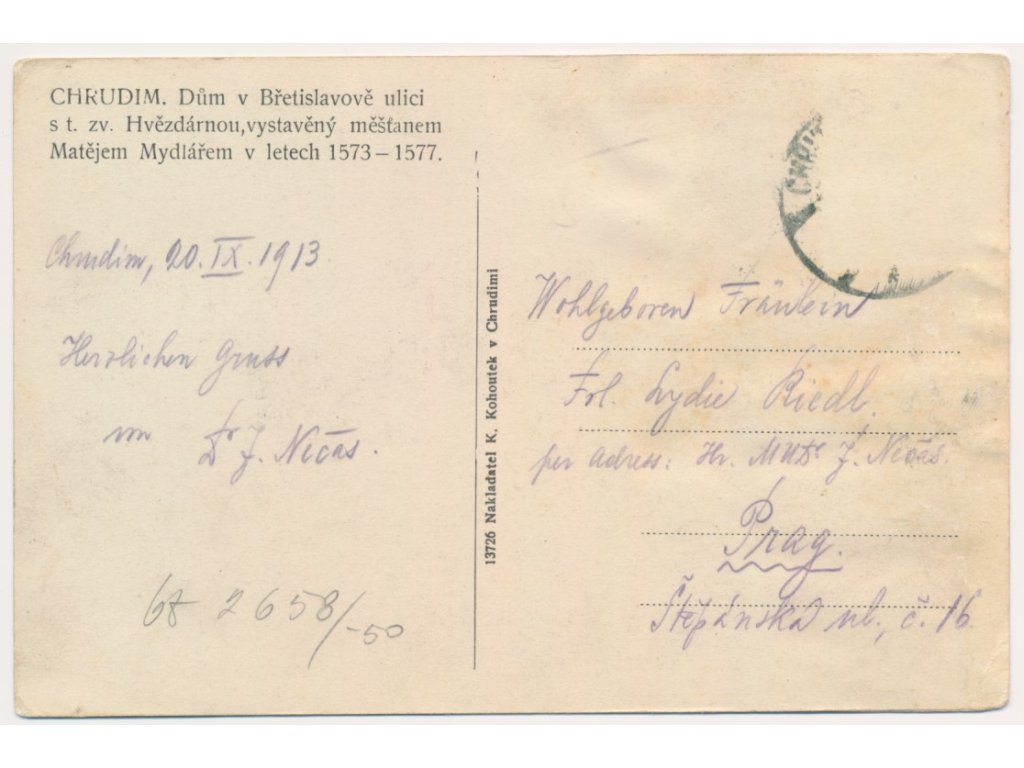 CHRUDIM. Dům v Břetislavově ulici
s t. zv. Hvězdárnou, vystavěný měšťanem
Matějem Mydlářem v letech 1573–1577.
Chrudim, 20. IX. 1913
Herzlichen Gruss
von Dr J. Nečas.
2658/-50
13726 Nakladatel K. Kohoutek v Chrudimi
Wohlgeboren Fräulein
Frl. Lydie Riedl.
per Adress: Hr. MUDr J. Nečas.
Prag.
Štěpánská ul., č. 16